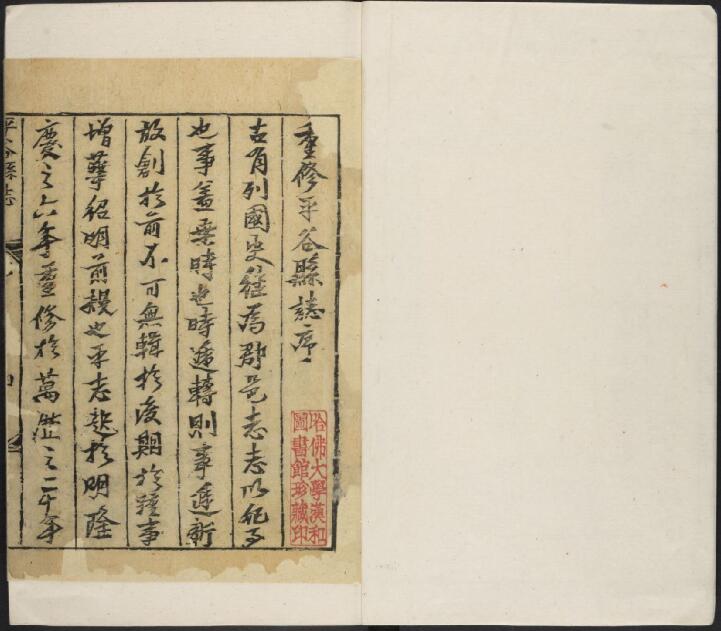 重修平谷縣誌序
古有列國史繼為郡邑志志以紀事
也事盖乗時也時遞轉則事遞新
故創於前不可無輯於後期於踵事
增華紹明前規也平志起於明隆
慶之六年重修於萬曆之二十年
平谷縣志
哈佛大學漢和
圖書館珍藏印